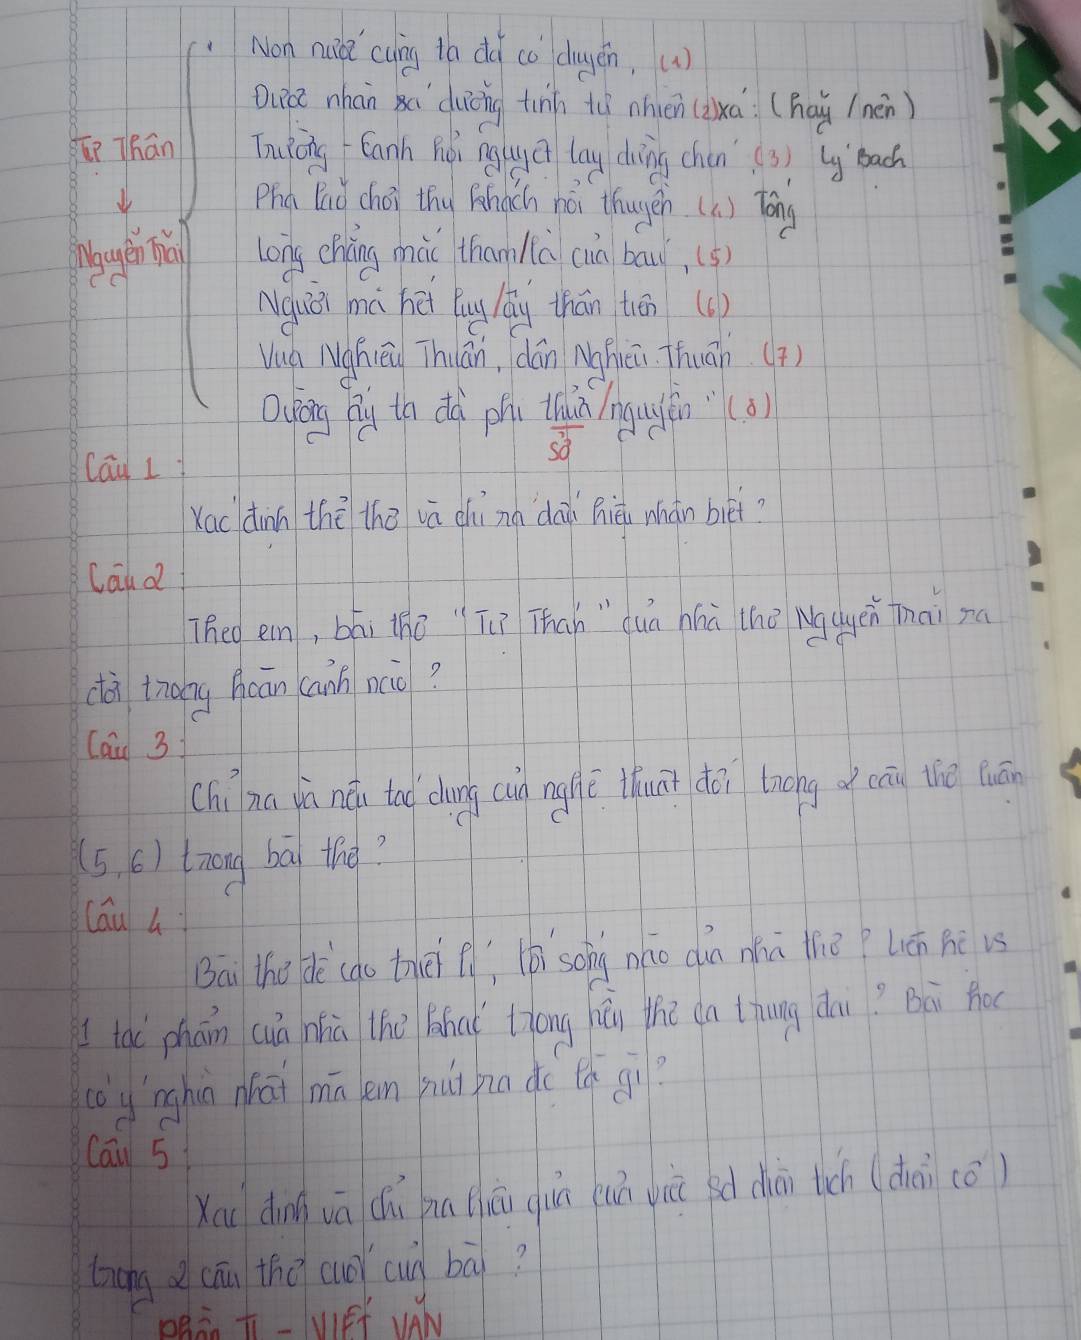 Non nước cùng ta đã có duyên, (1)
Được nhàn sá dưỡng tính tự nhiên (2) xá: (hãy / nên)
Tự Thán
Trường - Canh hỏi nguyệt tay dừng chén (3) Lý Bạch
↓
Pha lão chơi thu khách nổi thuyền (4) Tống
Nguyễn Trãi
Lòng chẳng mắc tham / là của báu, (5)
Người mà hết lụy / ấy thân tiên (6)
Vua Nghiêu Thuấn, dân Nghiêu Thuấn (7)
Dường ấy ta đà phỉ thửa / nguyền" (8)
sở
Câu 1:
Xác định thể thơ và chỉ ra dấu hiệu nhận biết?
Câu 2:
Theo em, bài thơ "Tự Thán" của nhà thơ Nguyễn Trãi ra
đời trong hoàn cảnh nào?
Câu 3:
Chỉ ra và nêu tác dụng của nghệ thuật đối trong 2 câu thơ luận
(5, 6) trong bài thơ?
Câu 4:
Bài thơ đề cao triết lí, lối sống nào của nhà thơ? Liên hệ vs
1 tác phẩm của nhà thơ khác trong nền thơ ca trung đại? Bài học
có ý nghĩa nhất mà em rút ra đc là gì?
Câu 5:
Xác định và chỉ ra hiệu quả của việc sd điển tích (điển cố)
trong 2 câu thơ cuối của bài?
PHẦN II - VIẾT VĂN